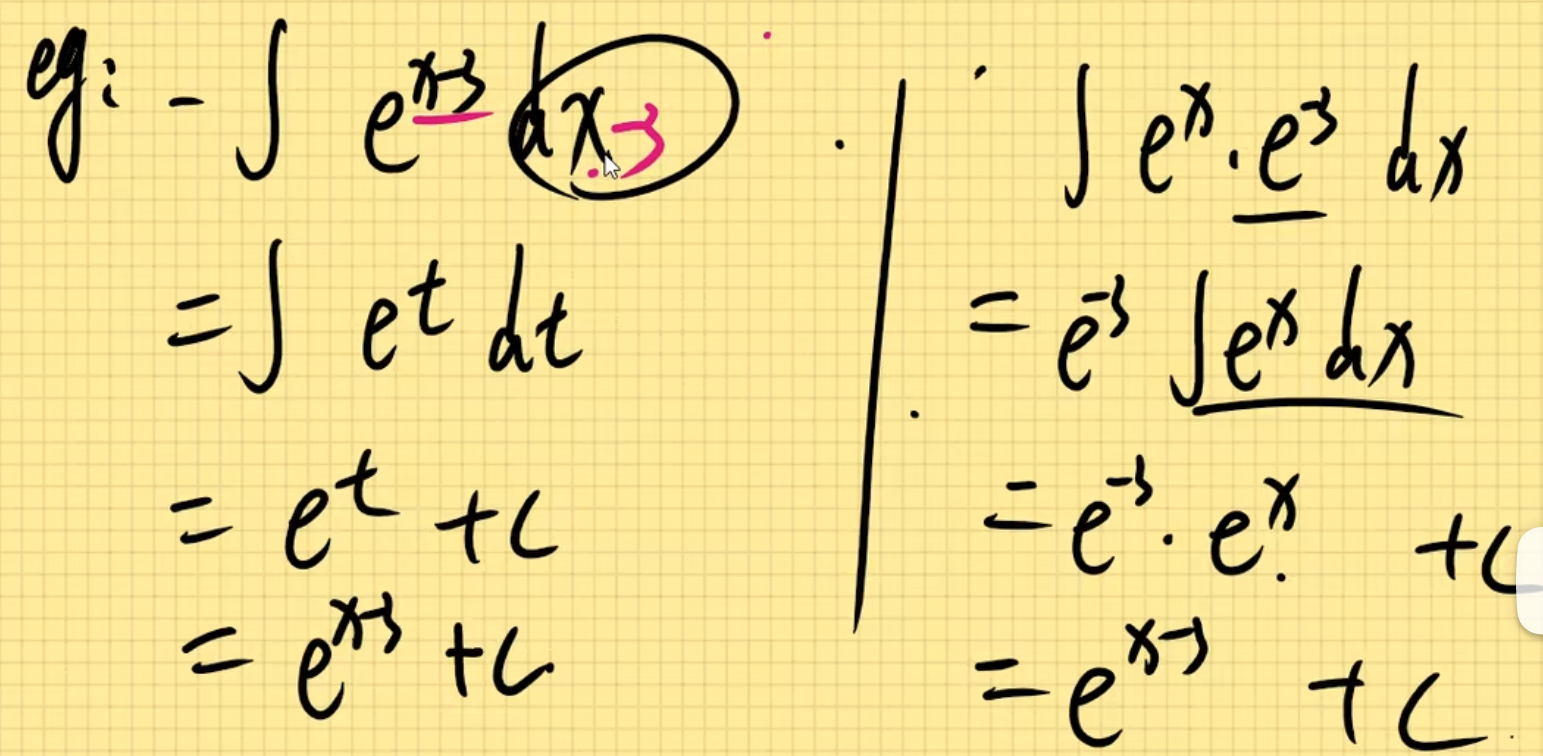 eg: - ∫ e^{x-3} dx-3
= ∫ e^t dt
= e^t + c
= e^{x-3} + c
∫ e^x · e^{-3} dx
= e^{-3} ∫ e^x dx
= e^{-3} · e^x + c
= e^{x-3} + c